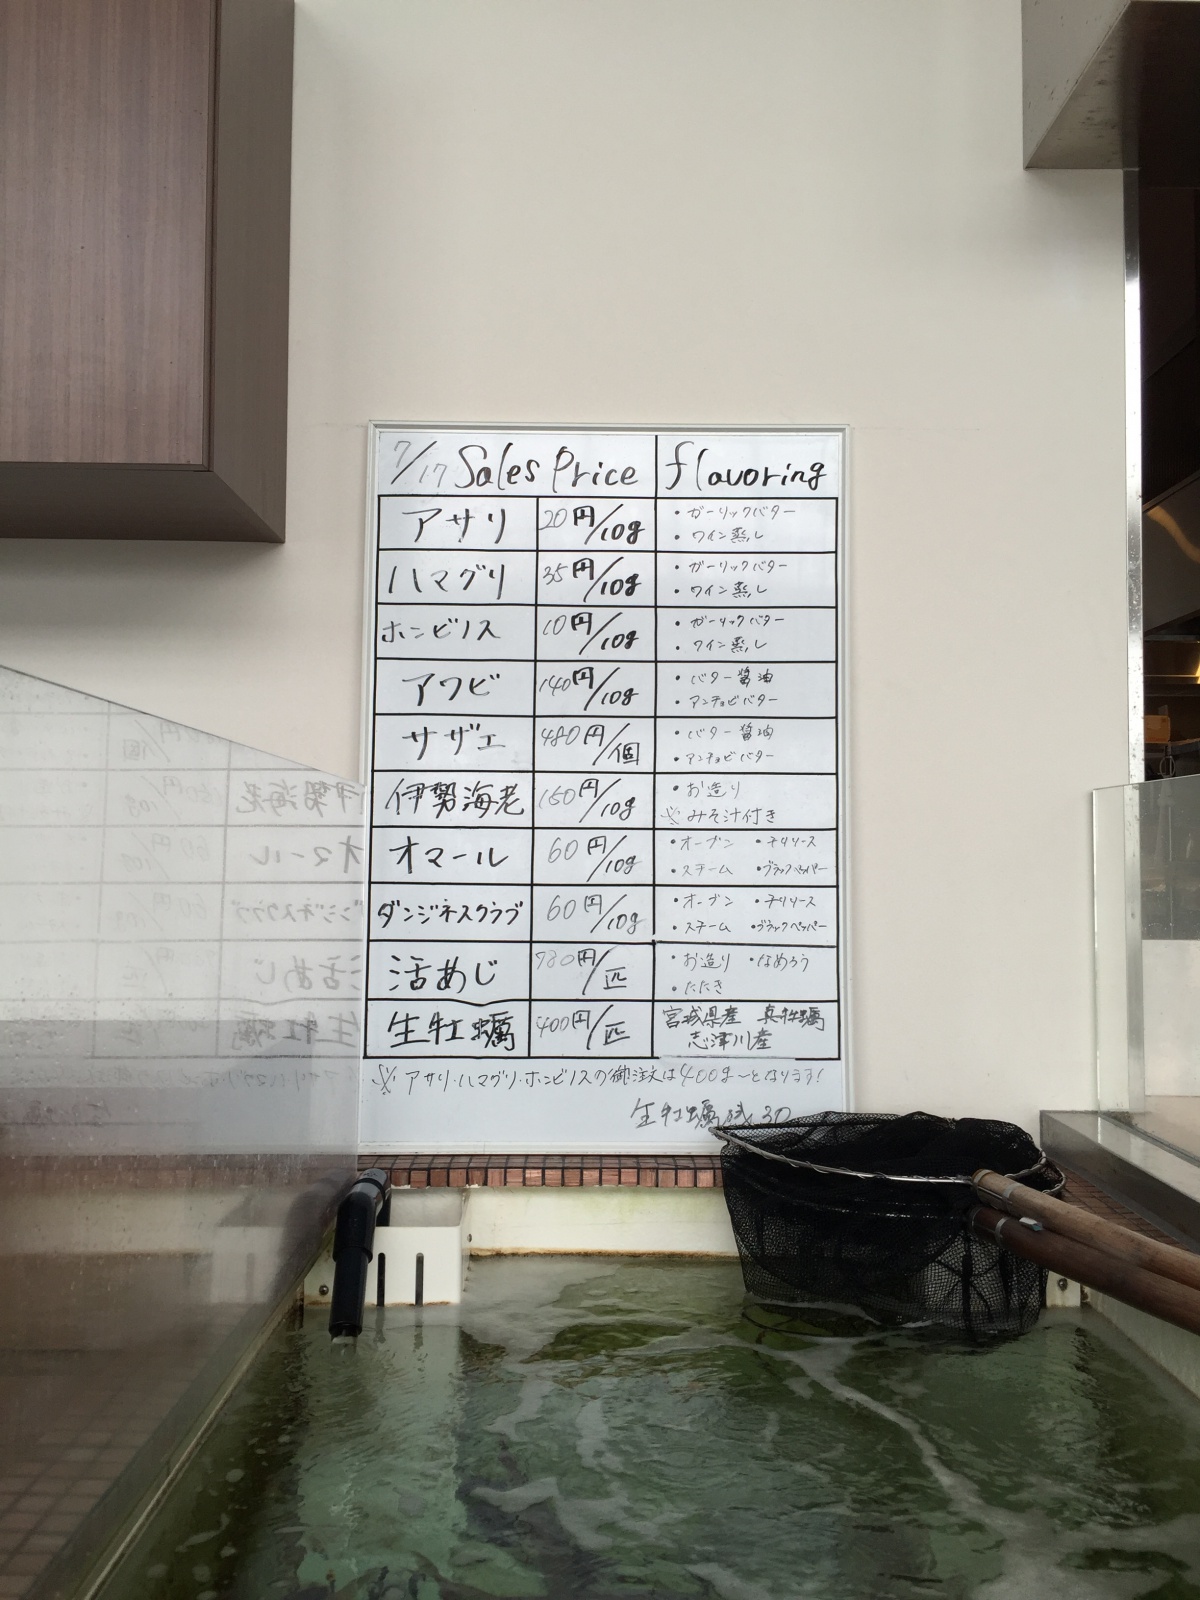 7/17 Sales Price flavoring
アサリ 20円/10g ・ガーリックバター
・ワイン蒸し
ハマグリ 35円/10g ・ガーリックバター
・ワイン蒸し
ホンビノス 10円/10g ・ガーリックバター
・ワイン蒸し
アワビ 140円/10g ・バター醤油
・アンチョビバター
サザエ 480円/個 ・バター醤油
・アンチョビバター
伊勢海老 150円/10g ・お造り
※みそ汁付き
オマール 60円/10g ・オーブン ・チリソース
・スチーム ・ブラックペッパー
ダンジネスクラブ 60円/10g ・オーブン ・チリソース
・スチーム ・ブラックペッパー
活あじ 780円/匹 ・お造り ・なめろう
・たたき
生牡蠣 400円/匹 宮城県産 真牡蠣
志津川産
※アサリ・ハマグリ・ホンビノスの御注文は400g〜となります!
生牡蠣残30